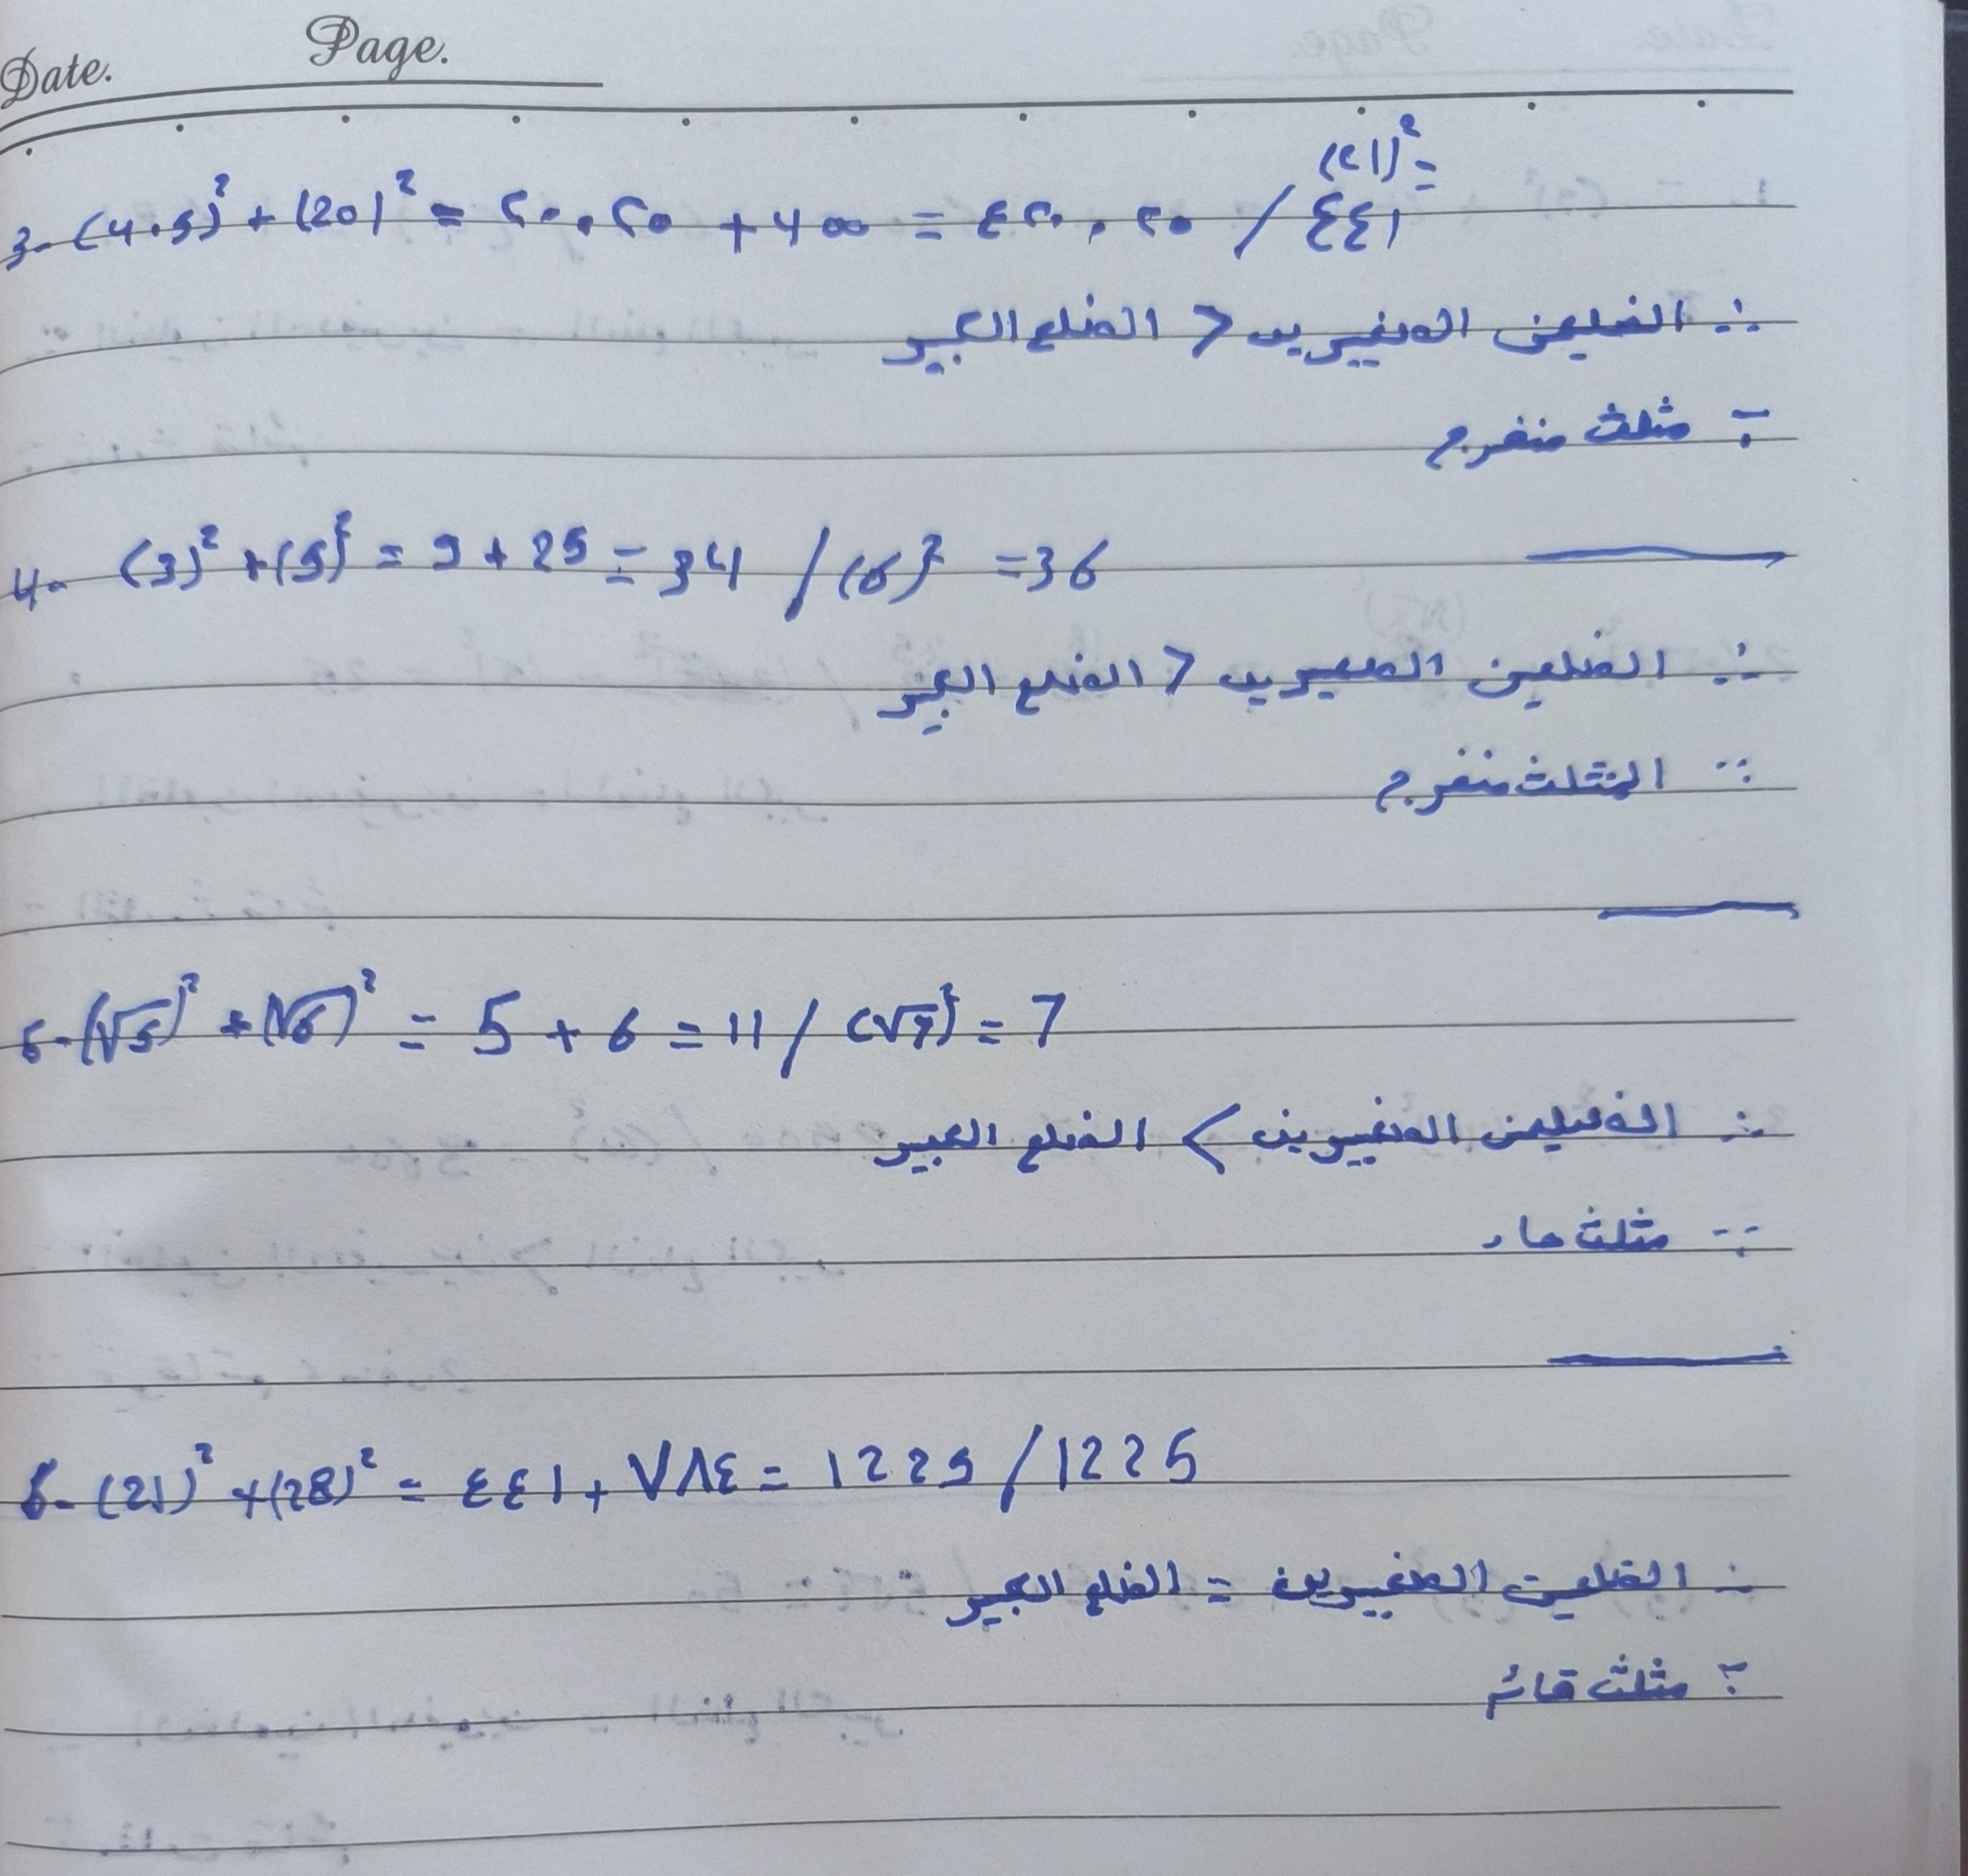 Date. Page.
3- (4.5)² + (20)² = ٢٠,٢٥ + 400 = ٤٢٠,٢٥ / (٢١)² = ٤٤١
∵ الضلعين الصغيرين < الضلع الكبير
∴ مثلث منفرج
4- (3)² + (5)² = 9 + 25 = 34 / (6)² = 36
∵ الضلعين الصغيرين < الضلع الكبير
∴ المثلث منفرج
5- (√5)² + (√6)² = 5 + 6 = 11 / (√7)² = 7
∵ الضلعين الصغيرين > الضلع الكبير
∴ مثلث حاد
6- (21)² + (28)² = ٤٤١ + ٧٨٤ = 1225 / 1225
∵ الضلعين الصغيرين = الضلع الكبير
∴ مثلث قائم